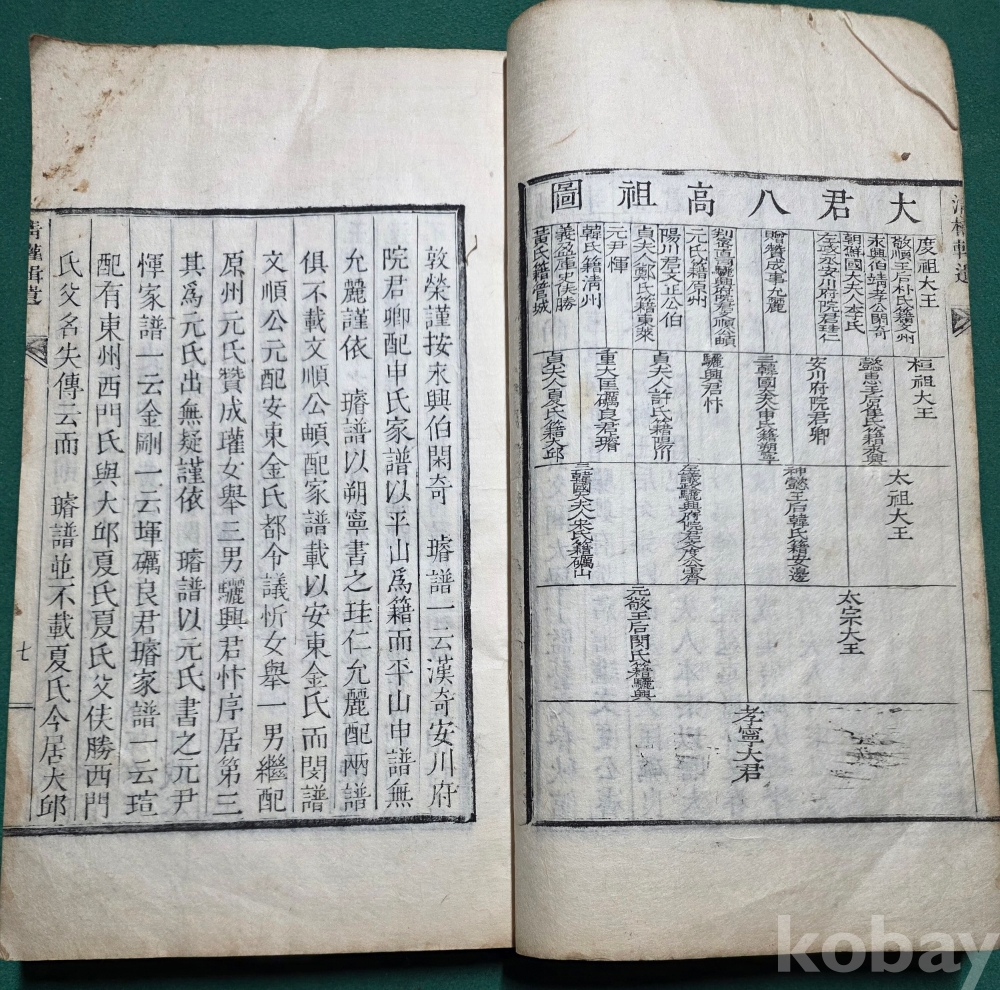 大君八高祖圖
度祖大王
敬順王后朴氏籍文州
永興伯靖孝公閑奇
朝鮮國大夫人李氏
安川府院君珪仁
贈贊成事允麗
元氏籍原州
陽川君文正公伯
貞夫人鄭氏籍東萊
元尹惲
韓氏籍淸州
義盈庫史俠勝
桓祖大王
懿惠王后崔氏籍永興
安川府院君卿
三韓國大夫人申氏籍朔寧
驪興君忭
貞夫人許氏籍陽川
重大匡礪良君璿
貞夫人夏氏籍大邱
太祖大王
神懿王后韓氏籍安邊
三韓國大夫人宋氏籍礪山
太宗大王
元敬王后閔氏籍驪興
孝寧大君
敦榮謹按永興伯閑奇 璿譜一云漢奇安川府
院君卿配申氏家譜以平山爲籍而平山申譜無
允麗謹依 璿譜以朔寧書之珪仁允麗配兩譜
俱不載文順公頔配家譜載以安東金氏而閔譜
文順公元配安東金氏都令議忻女舉一男繼配
原州元氏贊成瓘女舉三男驪興君忭序居第三
其爲元氏出無疑謹依 璿譜以元氏書之元尹
惲家譜一云金剛一云㨒礪良君璿家譜一云瑄
配有東州西門氏與大邱夏氏夏氏父俠勝西門
氏父名失傳云而 璿譜並不載夏氏今居大邱
七
kobay